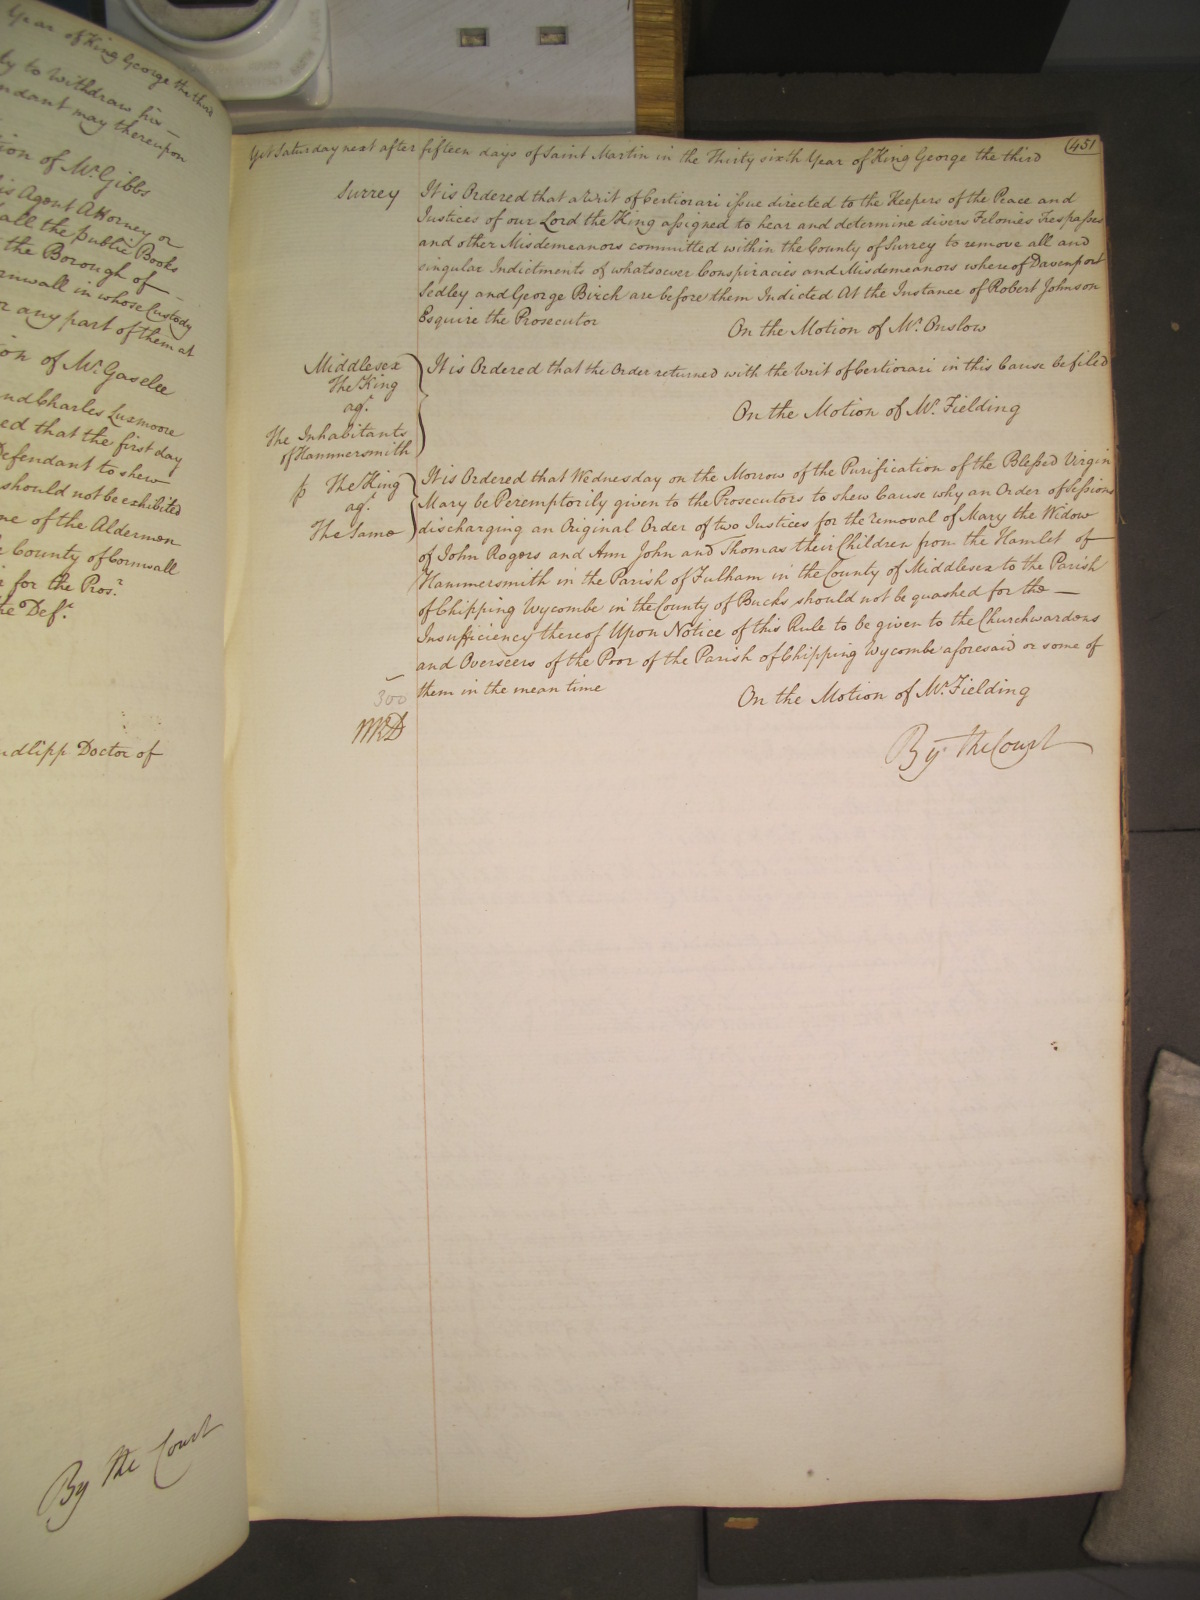 Year of King George the third
ty to withdraw his —
ndant may thereupon
ion of Mr. Gibbs
is Agent Attorney or
all the public Books
the Borough of —
rnwall in whose Custody
r any part of them at
ion of Mr. Gaselee
nd Charles Luxmoore
ed that the first day
Defendant to shew
should not be exhibited
ne of the Aldermen
County of Cornwall
for the Pros.r
he Def.t
ndlipp Doctor of
By the Court
Yet Saturday next after fifteen days of Saint Martin in the Thirty sixth Year of King George the third
451
Surrey
It is Ordered that a Writ of Certiorari issue directed to the Keepers of the Peace and
Justices of our Lord the King assigned to hear and determine divers Felonies Trespasses
and other Misdemeanors committed within the County of Surrey to remove all and
singular Indictments of whatsoever Conspiracies and Misdemeanors whereof Davenport
Sedley and George Birch are before them Indicted At the Instance of Robert Johnson
Esquire the Prosecutor
On the Motion of Mr. Onslow
Middlesex
The King
agt.
The Inhabitants
of Hammersmith
It is Ordered that the Order returned with the Writ of Certiorari in this Cause be filed
On the Motion of Mr. Fielding
p The King
agt.
The Same
It is Ordered that Wednesday on the Morrow of the Purification of the Blessed Virgin
Mary be Peremptorily given to the Prosecutors to shew Cause why an Order of Sessions
discharging an Original Order of two Justices for the removal of Mary the Widow
of John Rogers and Ann John and Thomas their Children from the Hamlet of
Hammersmith in the Parish of Fulham in the County of Middlesex to the Parish
of Chipping Wycombe in the County of Bucks should not be quashed for the —
Insufficiency thereof Upon Notice of this Rule to be given to the Churchwardens
and Overseers of the Poor of the Parish of Chipping Wycombe aforesaid or some of
them in the mean time
On the Motion of Mr. Fielding
300
By the Court